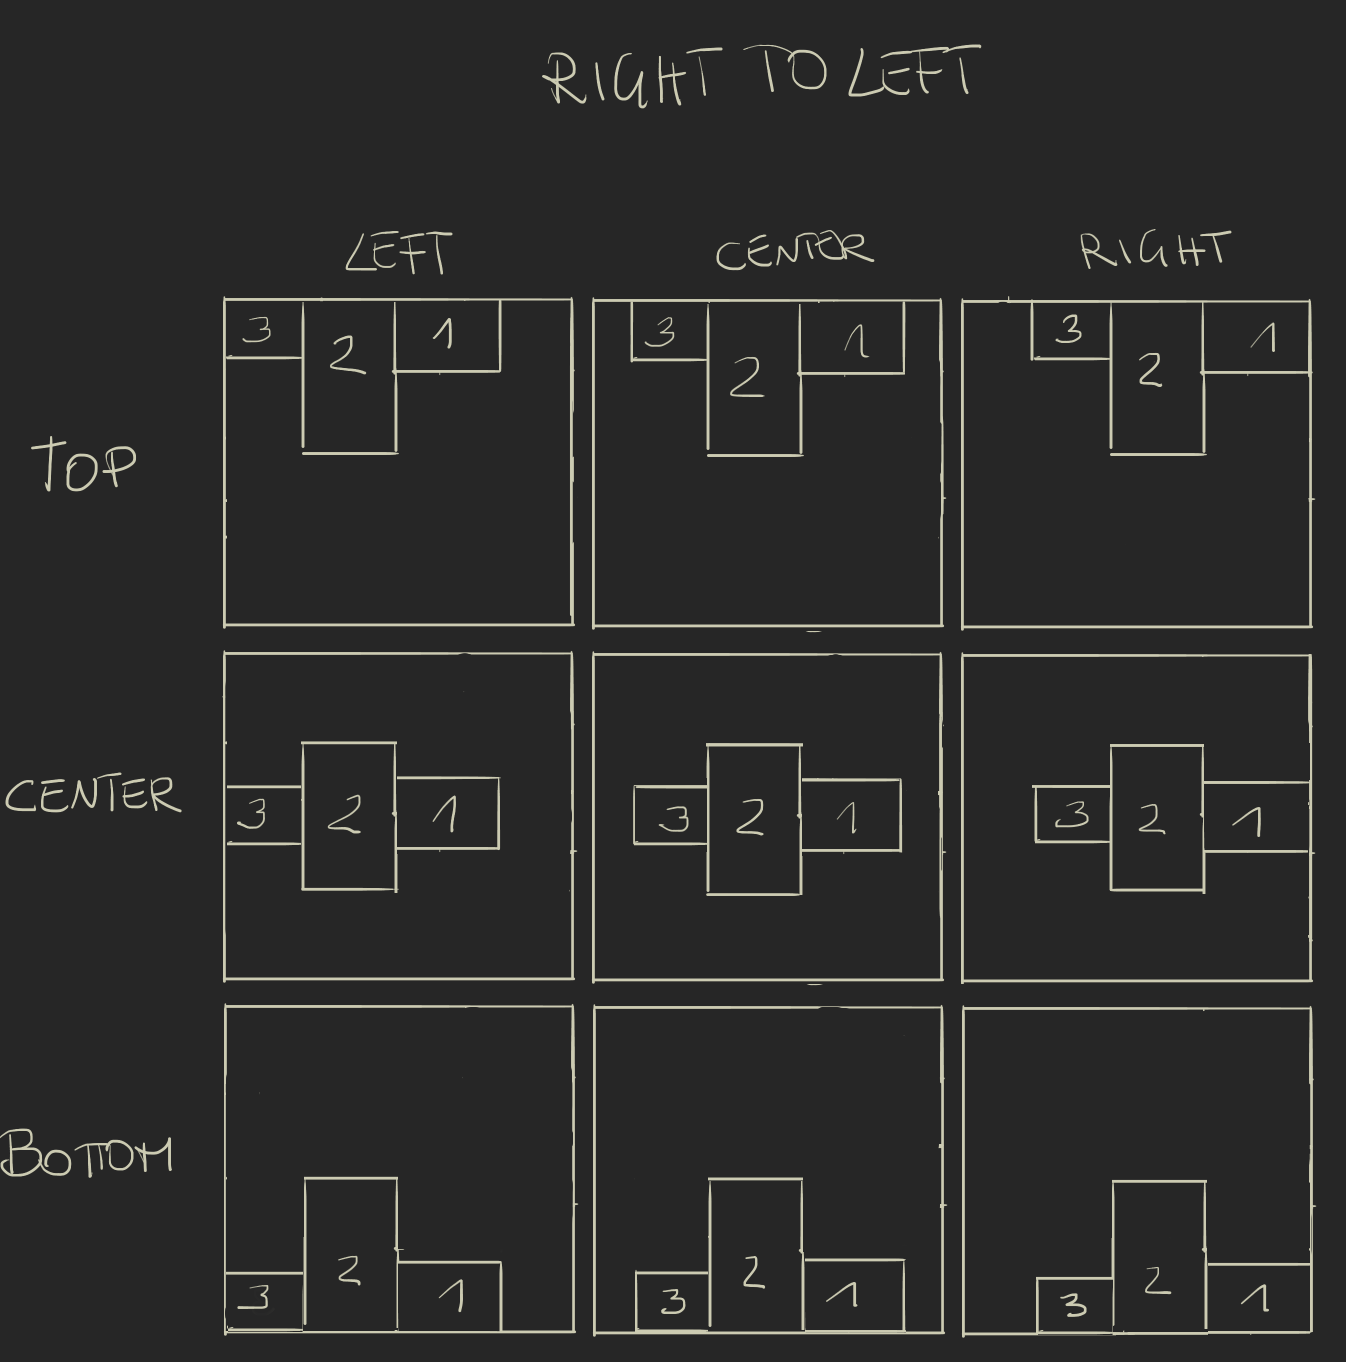 RIGHT TO LEFT
LEFT CENTER RIGHT
TOP
3 2 1
3 2 1
3 2 1
CENTER
3 2 1
3 2 1
3 2 1
BOTTOM
3 2 1
3 2 1
3 2 1